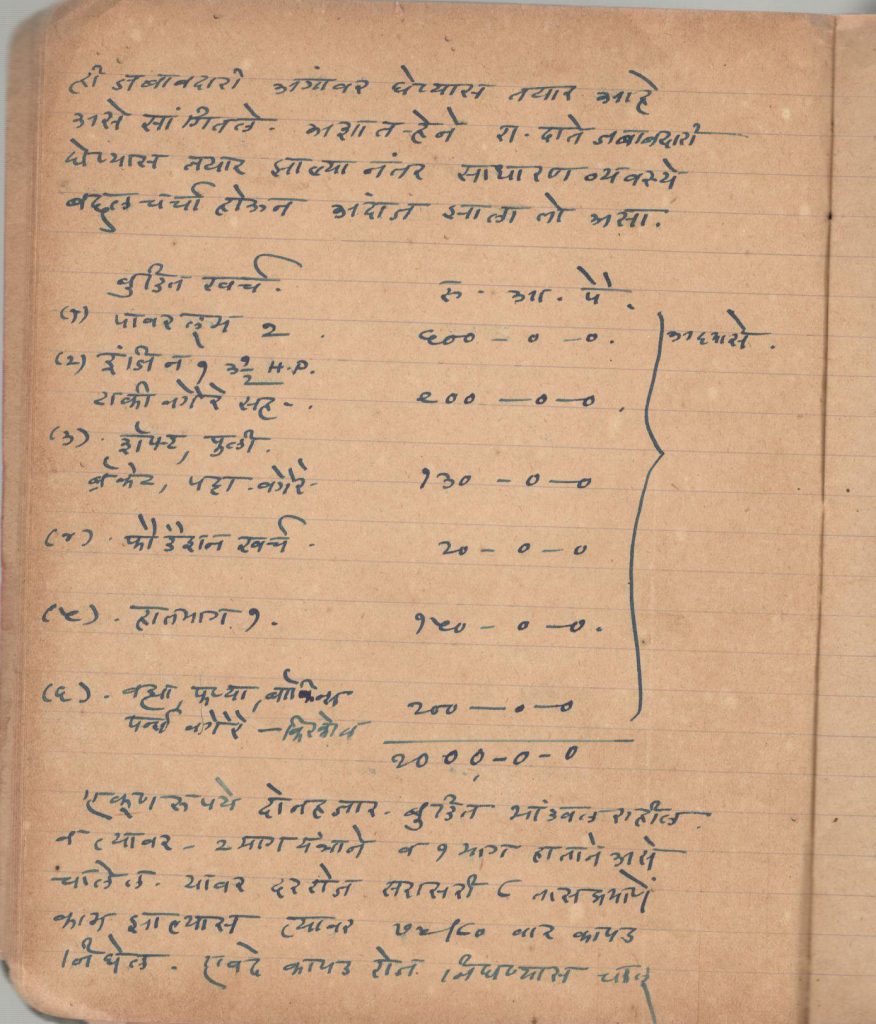 ही जबाबदारी अंगावर घेण्यास तयार आहे
असे सांगितले. अशा त-हेने रा. दाते जबाबदारी
घेण्यास तयार झाल्या नंतर साधारण व्यवस्थे
बद्दल चर्चा होऊन अंदाज झाला तो असा.
बुडित खर्च. रु. आ. पै.
(१) पावरलूम २ ६०० — ० — ०. अदमासे.
(२) इंजिन १ ३ १/२ H.P.
टाकी वगैरे सह -. ९०० — ० — ०.
(३) शॅाफ्ट, पुली.
ब्रॅकेट, पट्टा वगैरे - १३० — ० — ०
(४) फौंडेशन खर्च - २० — ० — ०
(५) हातमाग १. १५० — ० — ०.
(६) फण्या, बॉबिन्स
वगैरे — किरकोळ २०० — ० — ०
२००० — ० — ०
एकूण रुपये दोनहजार. बुडित भांडवल राहील.
व त्यावर - २ माग यंत्राने व १ माग हाताने असे
चालेल. यावर दररोज सरासरी ८ तासप्रमाणे
काम झाल्यास त्यावर ७५/८० वार कापड
निघेल. एवढे कापड रोज निघण्यास